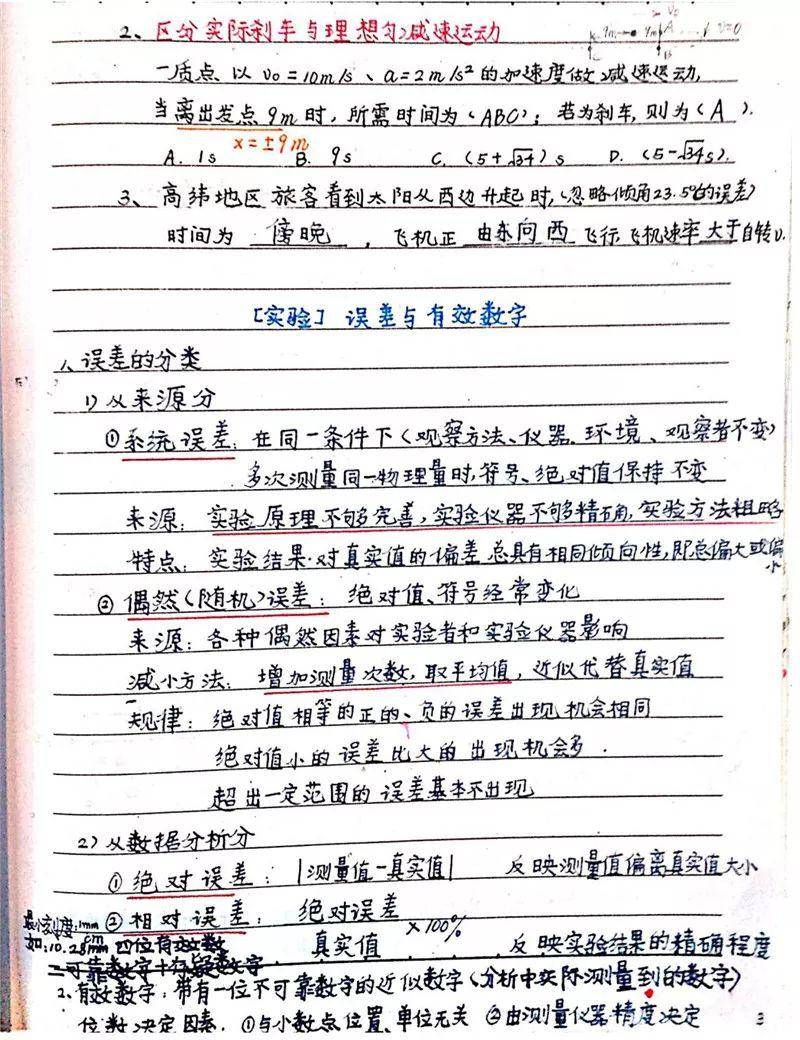 2、区分实际刹车与理想匀减速运动
9m 9m A v₀ v=0
一质点以v₀=10m/s、a=2m/s²的加速度做减速运动,
当离出发点9m时,所需时间为(ABC);若为刹车,则为(A).
x=±9m
A. 1s B. 9s C. (5+√34)s D. (5-√34s).
3、高纬地区旅客看到太阳从西边升起时,(忽略倾角23.5°的误差)
时间为 傍晚 ,飞机正 由东向西 飞行,飞机速率大于自转v.
[实验] 误差与有效数字
1、误差的分类
1)从来源分
①系统误差:在同一条件下(观察方法、仪器、环境、观察者不变)
多次测量同一物理量时,符号、绝对值保持不变
来源:实验原理不够完善,实验仪器不够精确,实验方法粗略
特点:实验结果对真实值的偏差总具有相同倾向性,即总偏大或偏小
②偶然(随机)误差:绝对值、符号经常变化
来源:各种偶然因素对实验者和实验仪器影响
减小方法:增加测量次数,取平均值,近似代替真实值
规律:绝对值相等的正的、负的误差出现机会相同
绝对值小的误差比大的出现机会多.
超出一定范围的误差基本不出现
2)从数据分析分
①绝对误差:|测量值-真实值| 反映测量值偏离真实值大小
②相对误差:绝对误差
真实值 ×100% 反映实验结果的精确程度
最小刻度:1mm
如:10.28cm 四位有效数
=可靠数字+存疑数字
2、有效数字:带有一位不可靠数字的近似数字(分析中实际测量到的数字)
位数决定因素.①与小数点位置、单位无关 ②由测量仪器精度决定
3